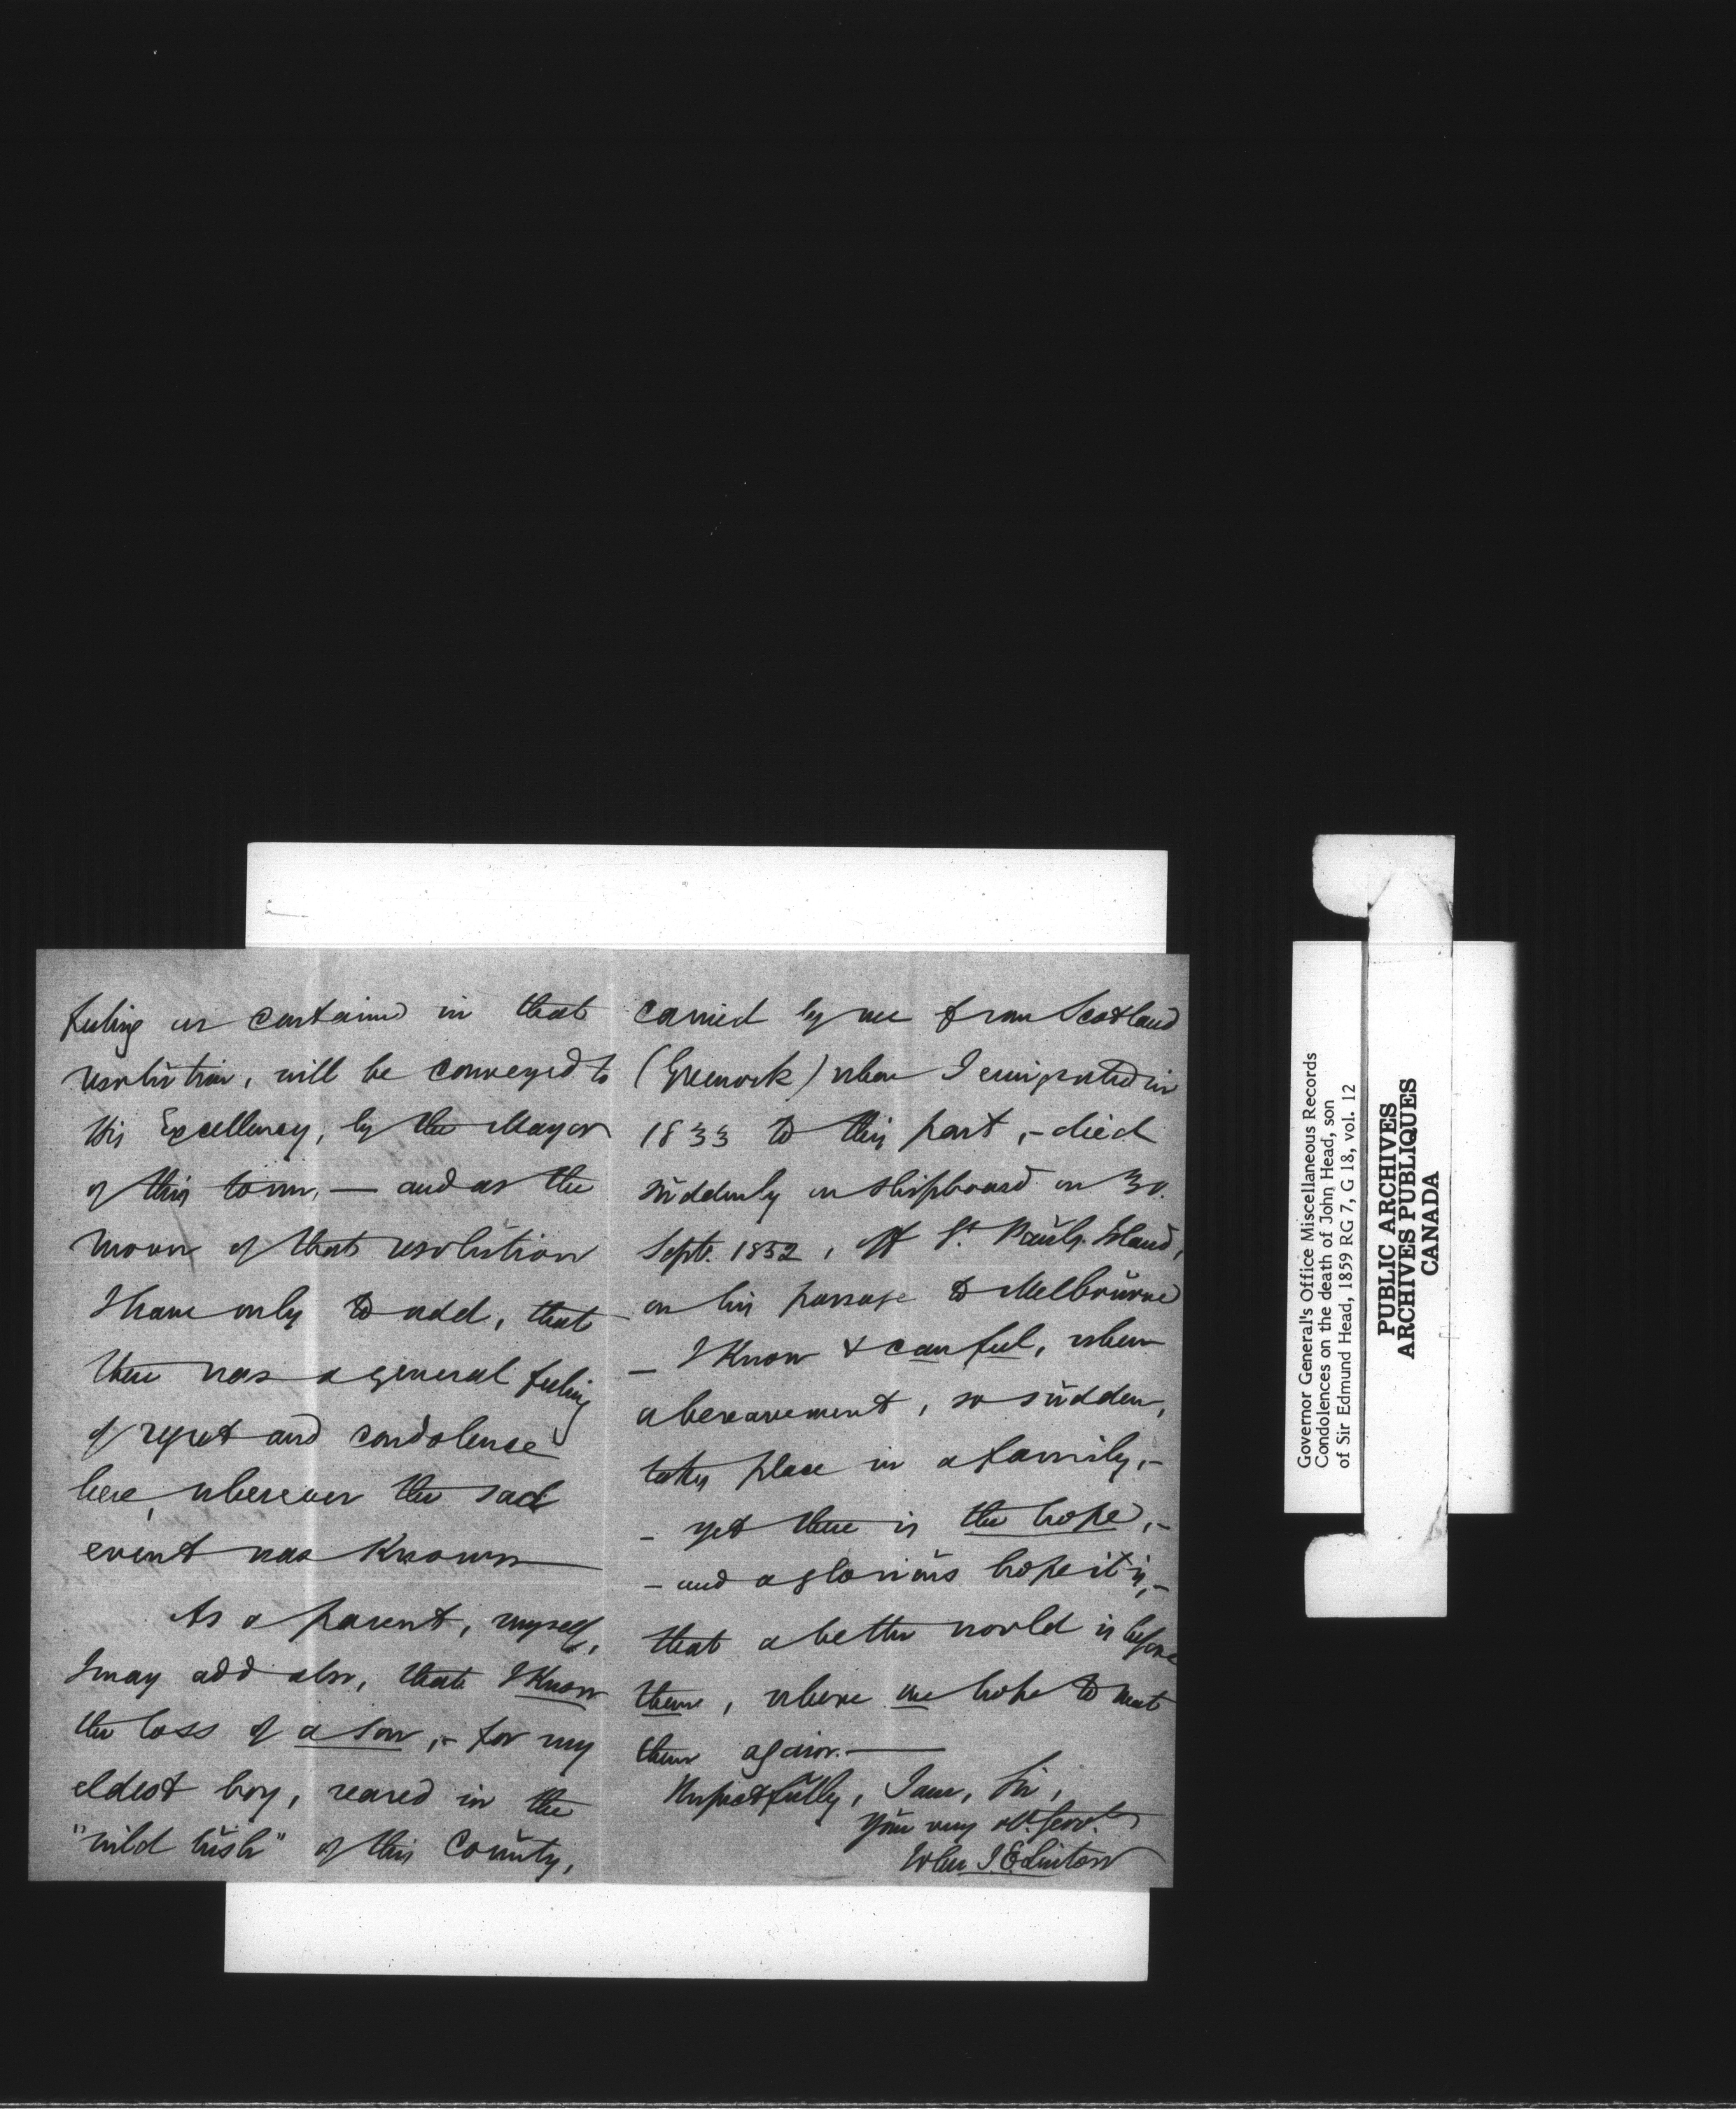 feeling as contained in that
resolution, will be conveyed to
His Excellency, by the Mayor
of this town, — and as the
mover of that resolution
I have only to add, that
there was a general feeling
of regret and condolence
here, wherever the sad
event was known —
As a parent, myself,
I may add also, that I know
the loss of a son, - for my
eldest boy, reared in the
"wild bush" of this County,
carried by me from Scotland
(Greenock) when I emigrated in
1833 to this part, - died
suddenly on shipboard on 30.
Septr. 1852, off St. Pauls Island,
on his passage to Melbourne
— I know & can feel, when
a bereavement, so sudden,
takes place in a family, -
- yet there is the hope, -
- and a glorious hope it is, -
that a better world is before
them, where we hope to meet
them again. —
Respectfully, I am, Sir,
Your very obt. Servt.
John J. E. Linton
Governor General's Office Miscellaneous Records
Condolences on the death of John Head, son
of Sir Edmund Head, 1859 RG 7, G 18, vol. 12
PUBLIC ARCHIVES
ARCHIVES PUBLIQUES
CANADA